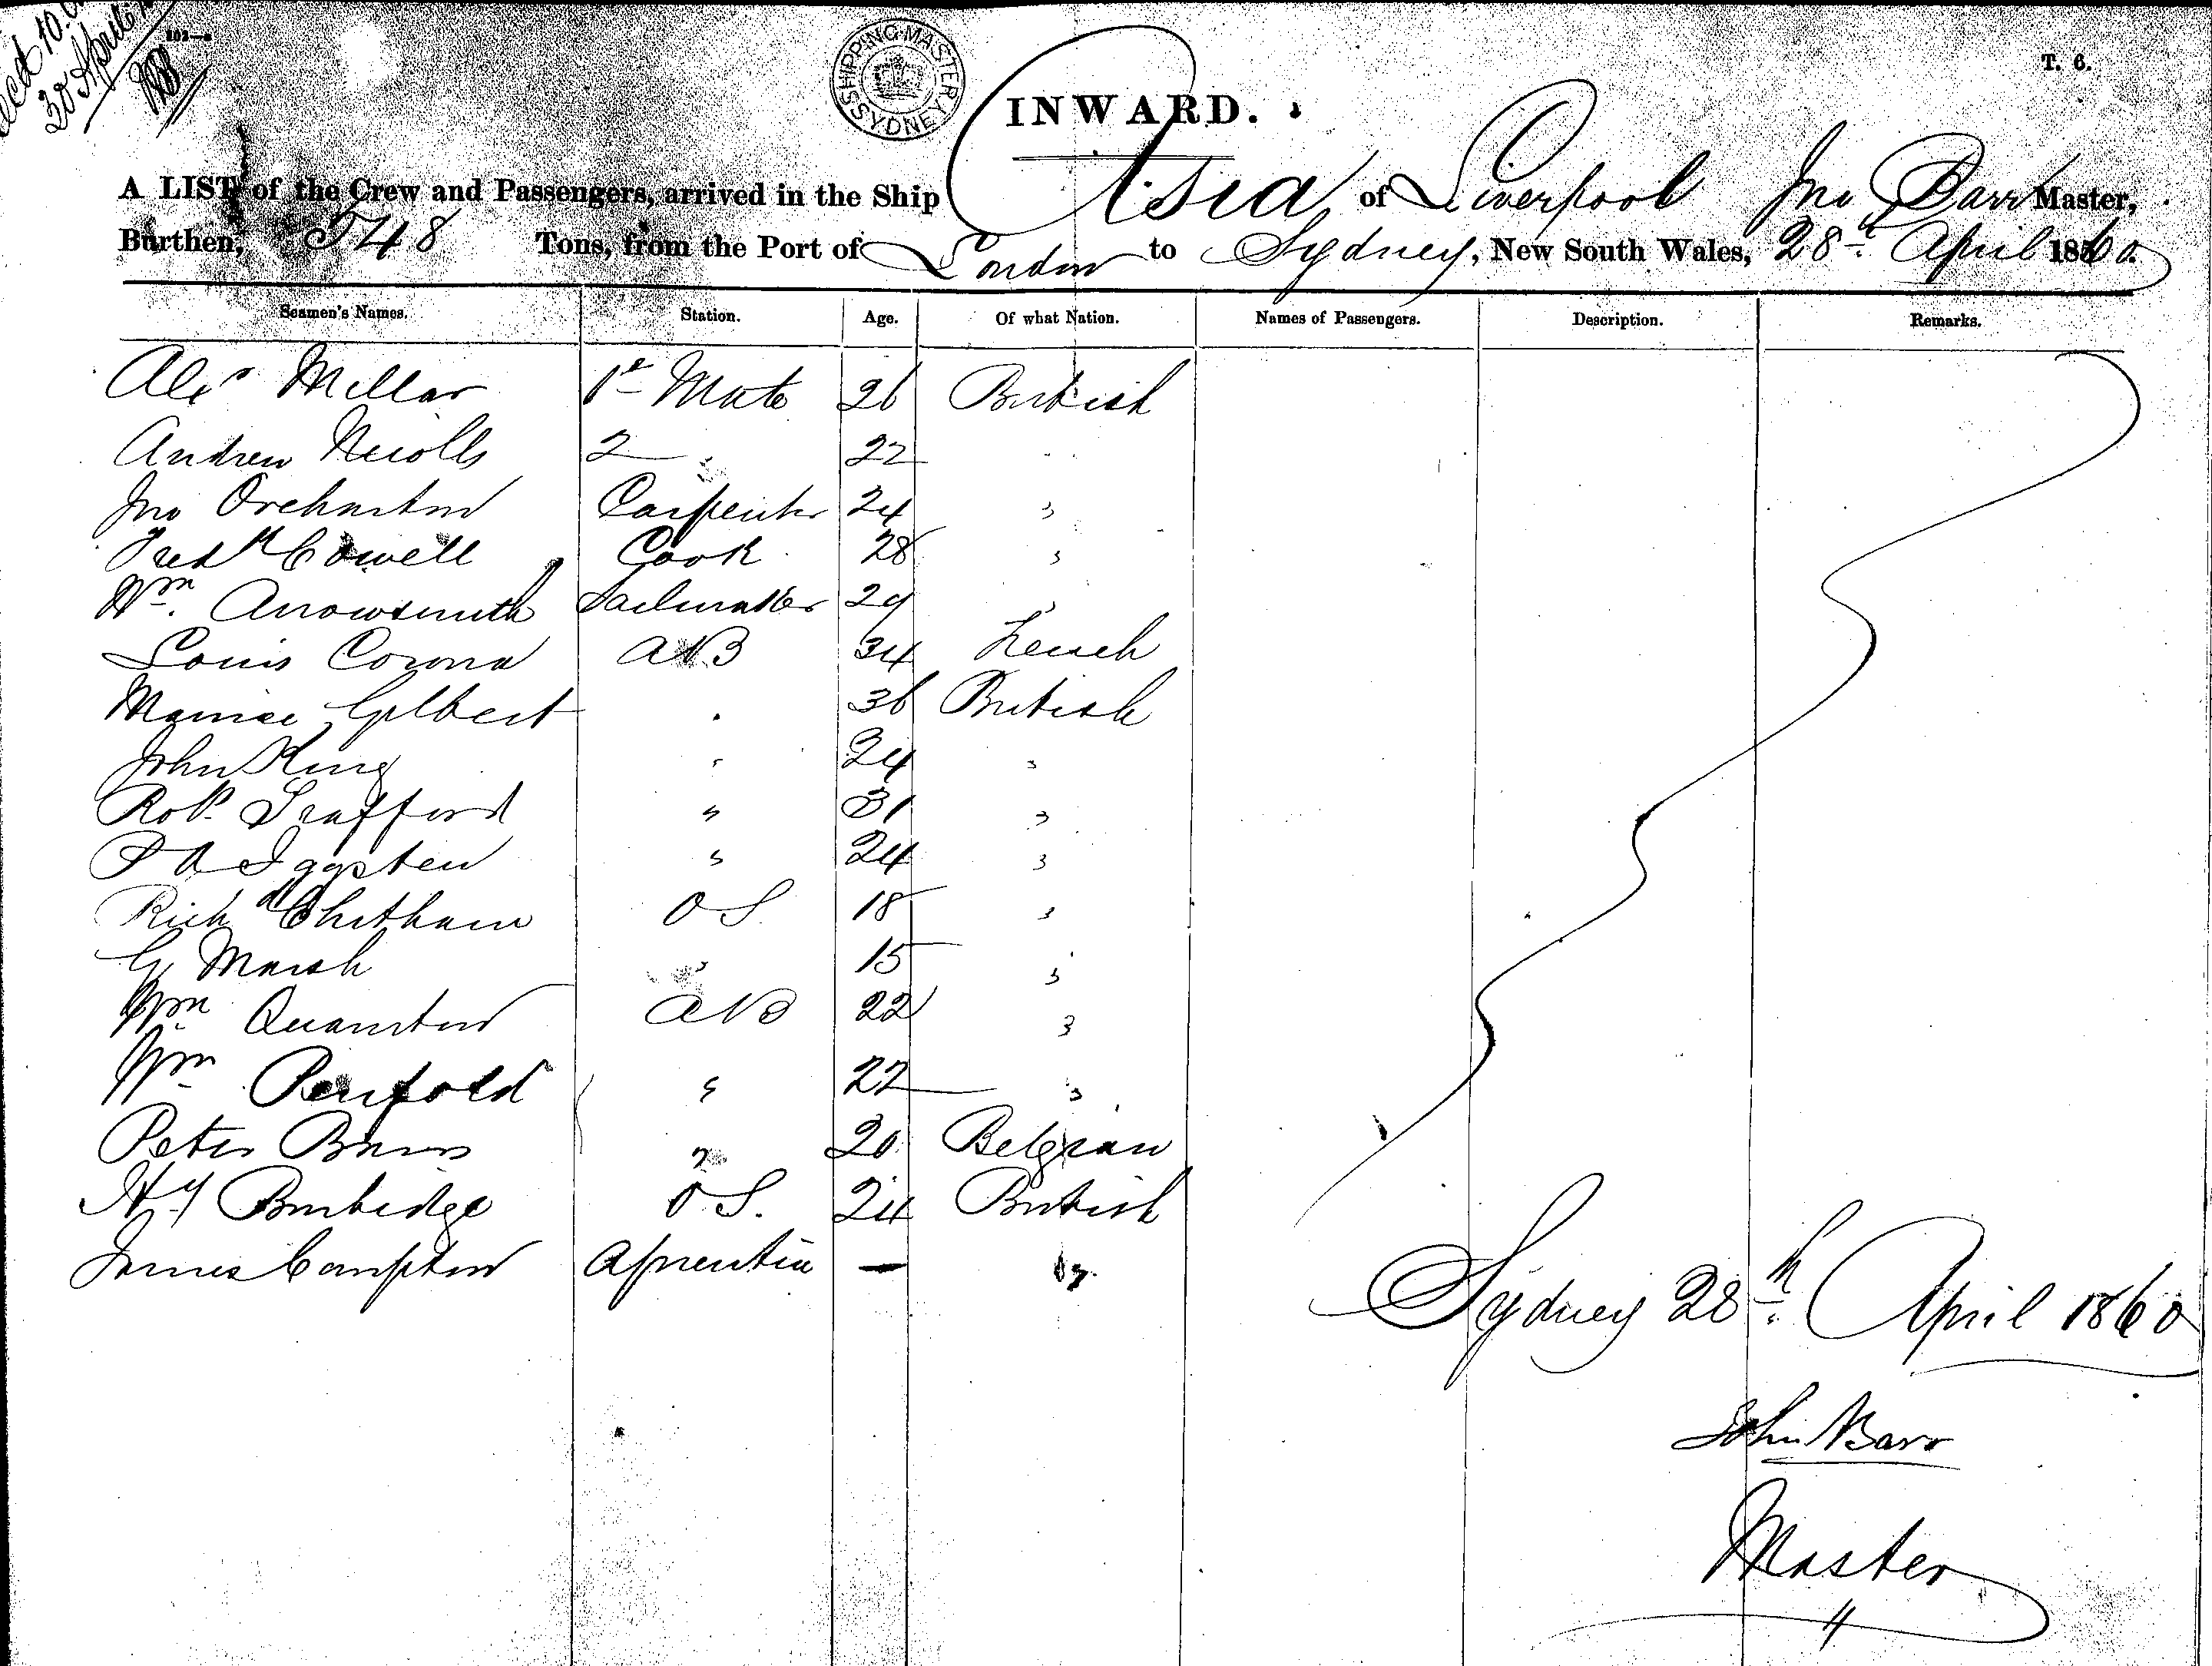 30 April
SHIPPING MASTER SYDNEY
T. 6.
INWARD.
A LIST of the Crew and Passengers, arrived in the Ship Asia of Liverpool Jno Barr Master,
Burthen, 548 Tons, from the Port of London to Sydney, New South Wales, 28th April 1860
Seamen's Names. Station. Age. Of what Nation. Names of Passengers. Description. Remarks.
Alexr Millar 1st Mate 26 British
Andrew Nicolls 2 " 22 "
Jno Orcharton Carpenter 24 "
Fredk Cowell Cook 28 "
Wm Arrowsmith Sailmaker 29 "
Louis Corona AB 34 French
Gilbert " 36 British
John King " 24 "
Robt Trafford " 31 "
24 "
Richd Chetham OS 18 "
G Marsh " 15 "
Wm AB 22 "
Wm Penfold " 22 "
Peter " 20 Belgian
Hy Burbidge OS. 24 British
James Compton Aprentice — "
Sydney 28th April 1860
John Barr
Master